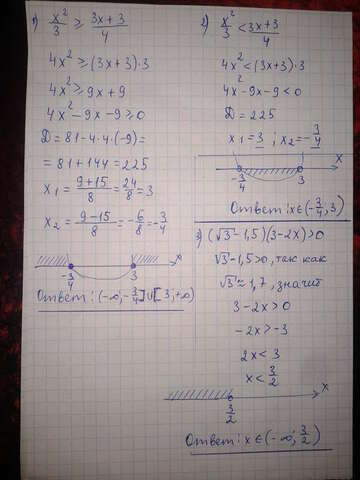 1) x²/3 ≥ (3x+3)/4
4x² ≥ (3x+3)·3
4x² ≥ 9x+9
4x²-9x-9≥0
D = 81-4·4·(-9)=
= 81+144=225
x₁ = (9+15)/8 = 24/8 = 3
x₂ = (9-15)/8 = -6/8 = -3/4
-3/4 3 x
Ответ: (-∞; -3/4] ∪ [3; +∞)
2) x²/3 < (3x+3)/4
4x² < (3x+3)·3
4x²-9x-9<0
D = 225
x₁ = 3 ; x₂ = -3/4
-3/4 3 x
Ответ: x∈(-3/4; 3)
3) (√3-1,5)(3-2x)>0
√3-1,5>0, так как
√3≈1,7, значит
3-2x>0
-2x>-3
2x<3
x<3/2
3/2 x
Ответ: x∈(-∞; 3/2)